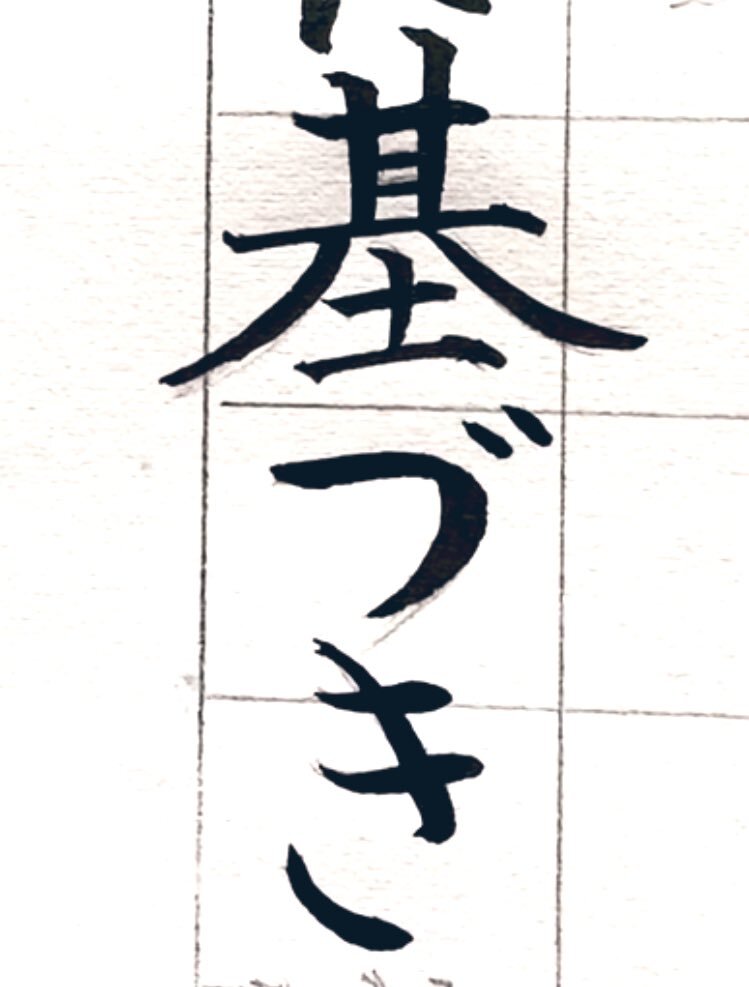 基づき